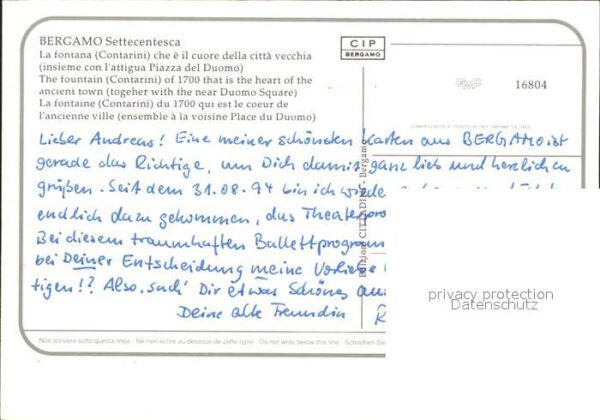 BERGAMO Settecentesca
La fontana (Contarini) che è il cuore della città vecchia
(insieme con l'attigua Piazza del Duomo)
The fountain (Contarini) of 1700 that is the heart of the
ancient town (togeher with the near Duomo Square)
La fontaine (Contarini) du 1700 qui est le coeur de
l'ancienne ville (ensemble à la voisine Place du Duomo)
CIP
BERGAMO
16804
Edizioni CITTADINI - Bergamo
Lieber Andreas! Eine meiner schönsten Karten aus BERGAMO ist
gerade das Richtige, um Dich damit ganz lieb und herzlich zu
grüßen. Seit dem 31.08.94 bin ich wieder
endlich dazu gekommen, das Theaterpro
Bei diesem traumhaften Ballettprogramm
bei Deiner Entscheidung meine Vorliebe
tigen!? Also, such' Dir etwas Schönes aus
Deine alte Freundin R
Non scrivere sotto questa linea - Ne rien écrire au dessous de cette ligne - Do not write below this line - Schreiben Sie
privacy protection
Datenschutz